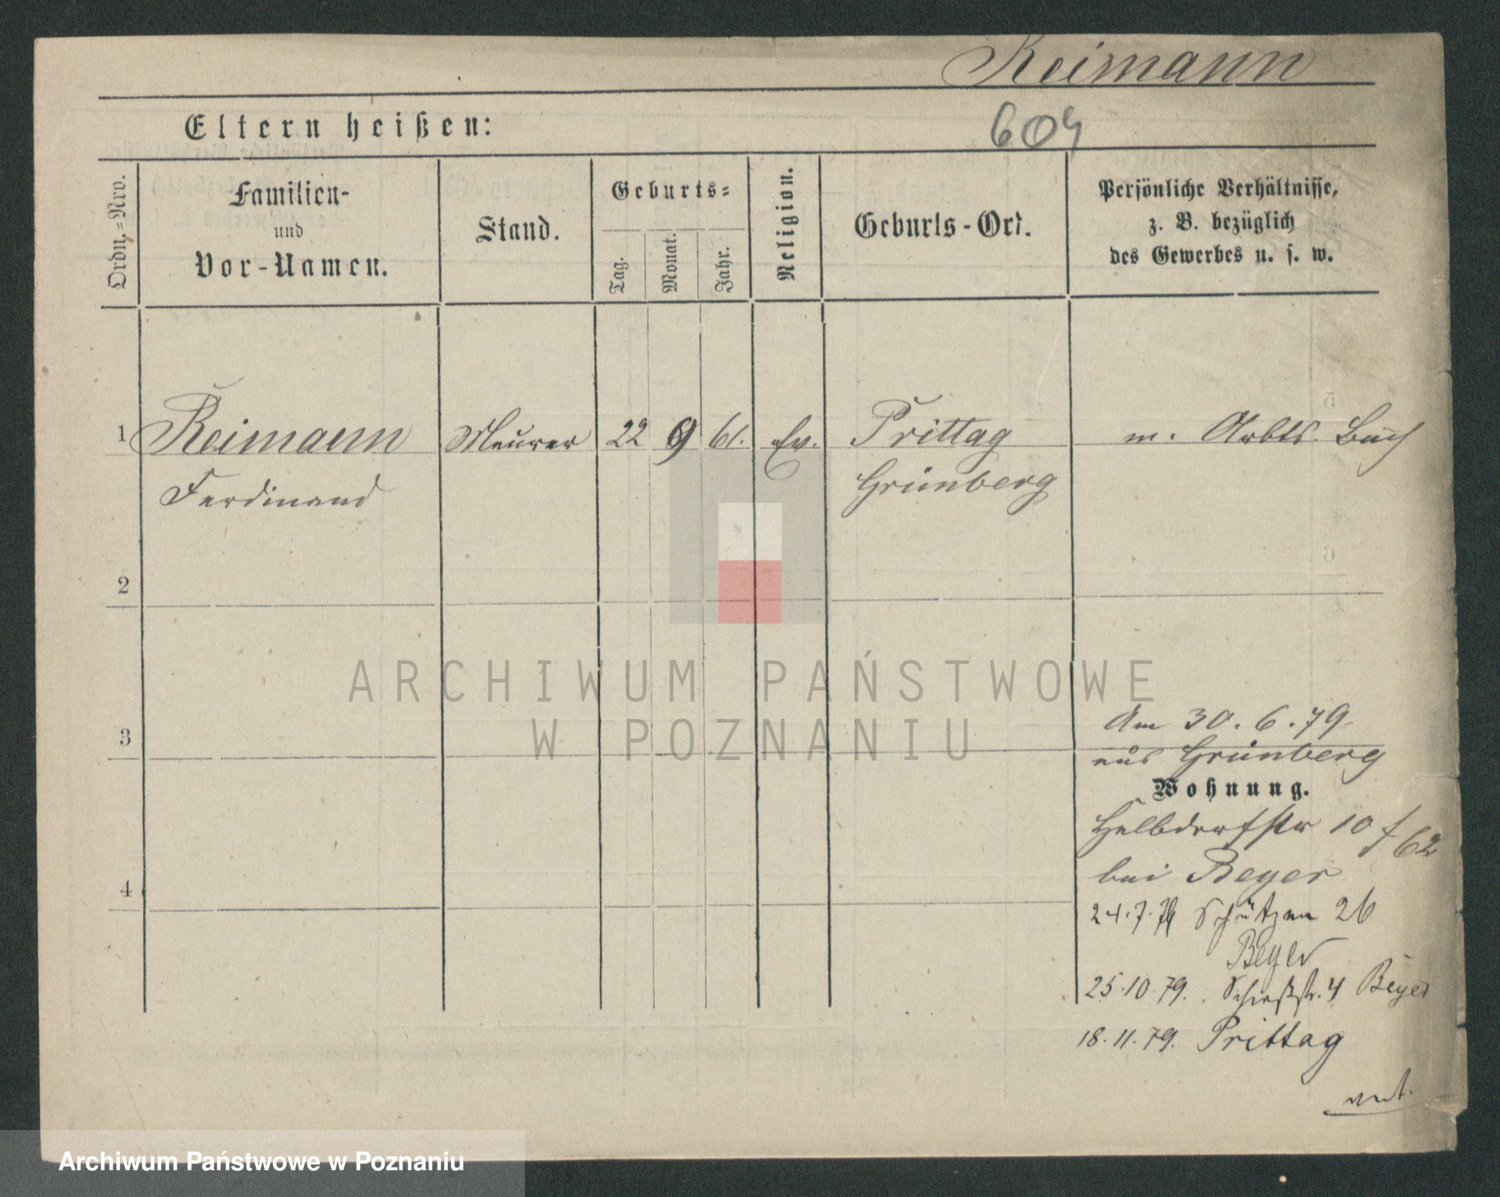 Reimann
604
Eltern heißen:
Ordn.-Nro.
Familien-
und
Vor-Namen.
Stand.
Geburts-
Tag.
Monat.
Jahr.
Religion.
Geburts-Ort.
Persönliche Verhältnisse,
z. B. bezüglich
des Gewerbes u. s. w.
1 Reimann Maurer 22 9 61. Ev. Prittag m. Arbts. Buch
Ferdinand Grünberg
2
3
4
Am 30.6.79
aus Grünberg
Wohnung.
Halbdorfstr 10 f 62
bei Beyer
24.7.79 Schützen 26
Beyer
25.10.79. Schießstr. 4 Beyer
18.11.79. Prittag
ARCHIWUM PAŃSTWOWE
W POZNANIU
Archiwum Państwowe w Poznaniu